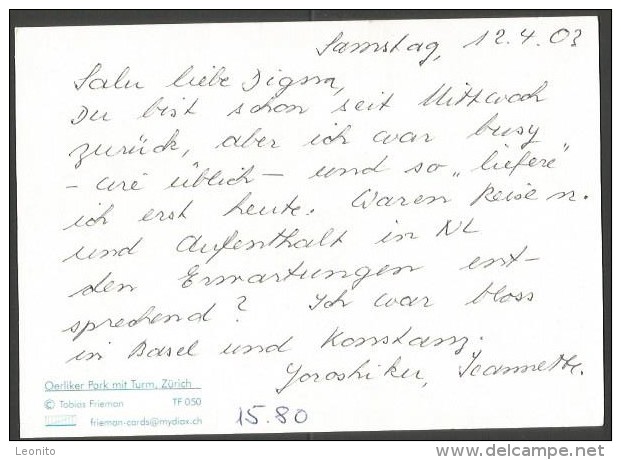 Samstag, 12.4.03
Salu liebe Digna,
Du bist schon seit Mittwoch
zurück, aber ich war busy
- wie üblich - und so „liefere"
ich erst heute. Waren Reise n.
und Aufenthalt in NL
den Erwartungen ent-
sprechend? Ich war bloss
in Basel und Konstanz.
Yoroshiku, Jeannette.
Oerliker Park mit Turm, Zürich
© Tobias Frieman TF 050
frieman-cards@mydiax.ch
15.80
Leonito
www.delcampe.net